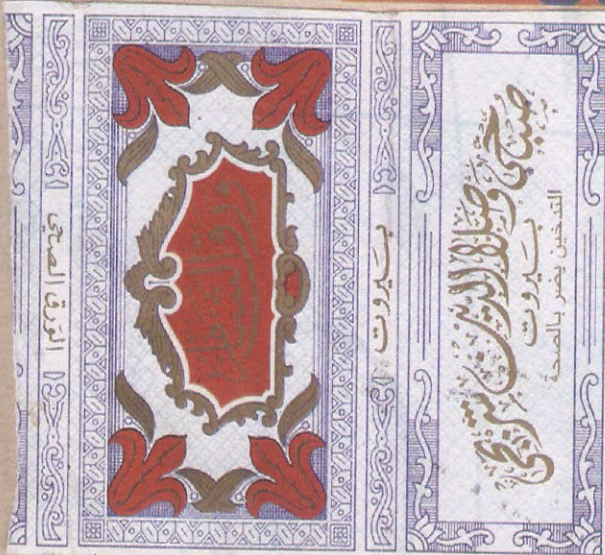 الورق الصحي
ورق الشام
بيروت
صبحي وصلاح الدين شربجي
بيروت
التدخين يضر بالصحة